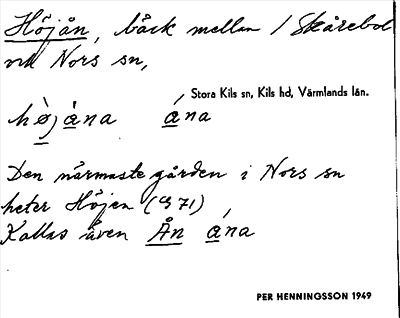 Höjån, bäck mellan / Skårebol
och Nors sn,
Stora Kils sn, Kils hd, Värmlands län.
hø̀jána ána
Den närmaste gården i Nors sn
heter Höjen (971)
Kallas även Ån ána
PER HENNINGSSON 1949